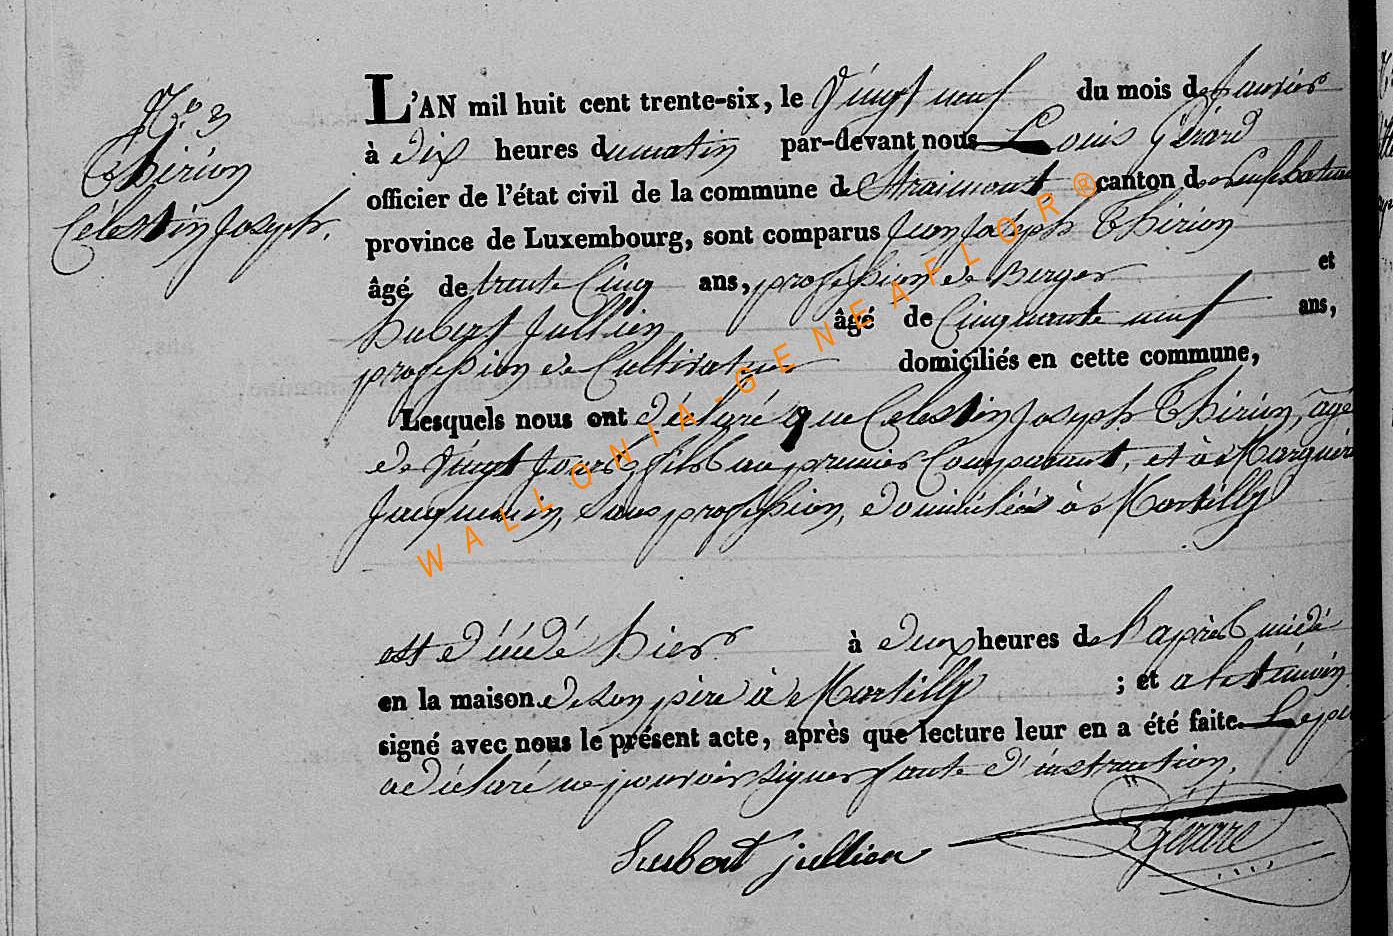 N.o 3
Thirion
Célestin Joseph.
L'AN mil huit cent trente-six, le Vingt neuf du mois de Janvier
à dix heures du matin par-devant nous Louis Gérard
officier de l'état civil de la commune de Straimont canton de Neufchateau
province de Luxembourg, sont comparus Jean Joseph Thirion
âgé de trente Cinq ans, profession de Berger et
hubert Jullien âgé de Cinquante neuf ans,
profession de Cultivateur domiciliés en cette commune,
Lesquels nous ont déclaré que Celestin Joseph Thirion, âgé
de Vingt Jours, fils du premier Comparant, et de Margueri
Jacquemin, sans profession, domiciliés à Martilly
est décédé hier à deux heures de l'après midi
en la maison de son père à Martilly ; et a le témoin
signé avec nous le présent acte, après que lecture leur en a été faite. Le pe
a déclaré ne pouvoir signer faute d'instruction.
hubert jullien LGérard
WALLONIA-GENEAFLOR®